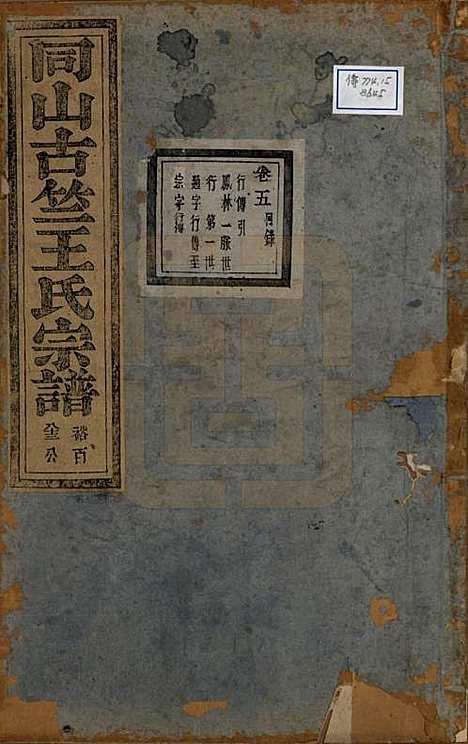 同山古竺王氏宗譜
裕百
仝公
卷五 目錄
行傳引
鳳林一脈世
行第一世
遇字行傳至
宗字行傳
傳774.15
8645